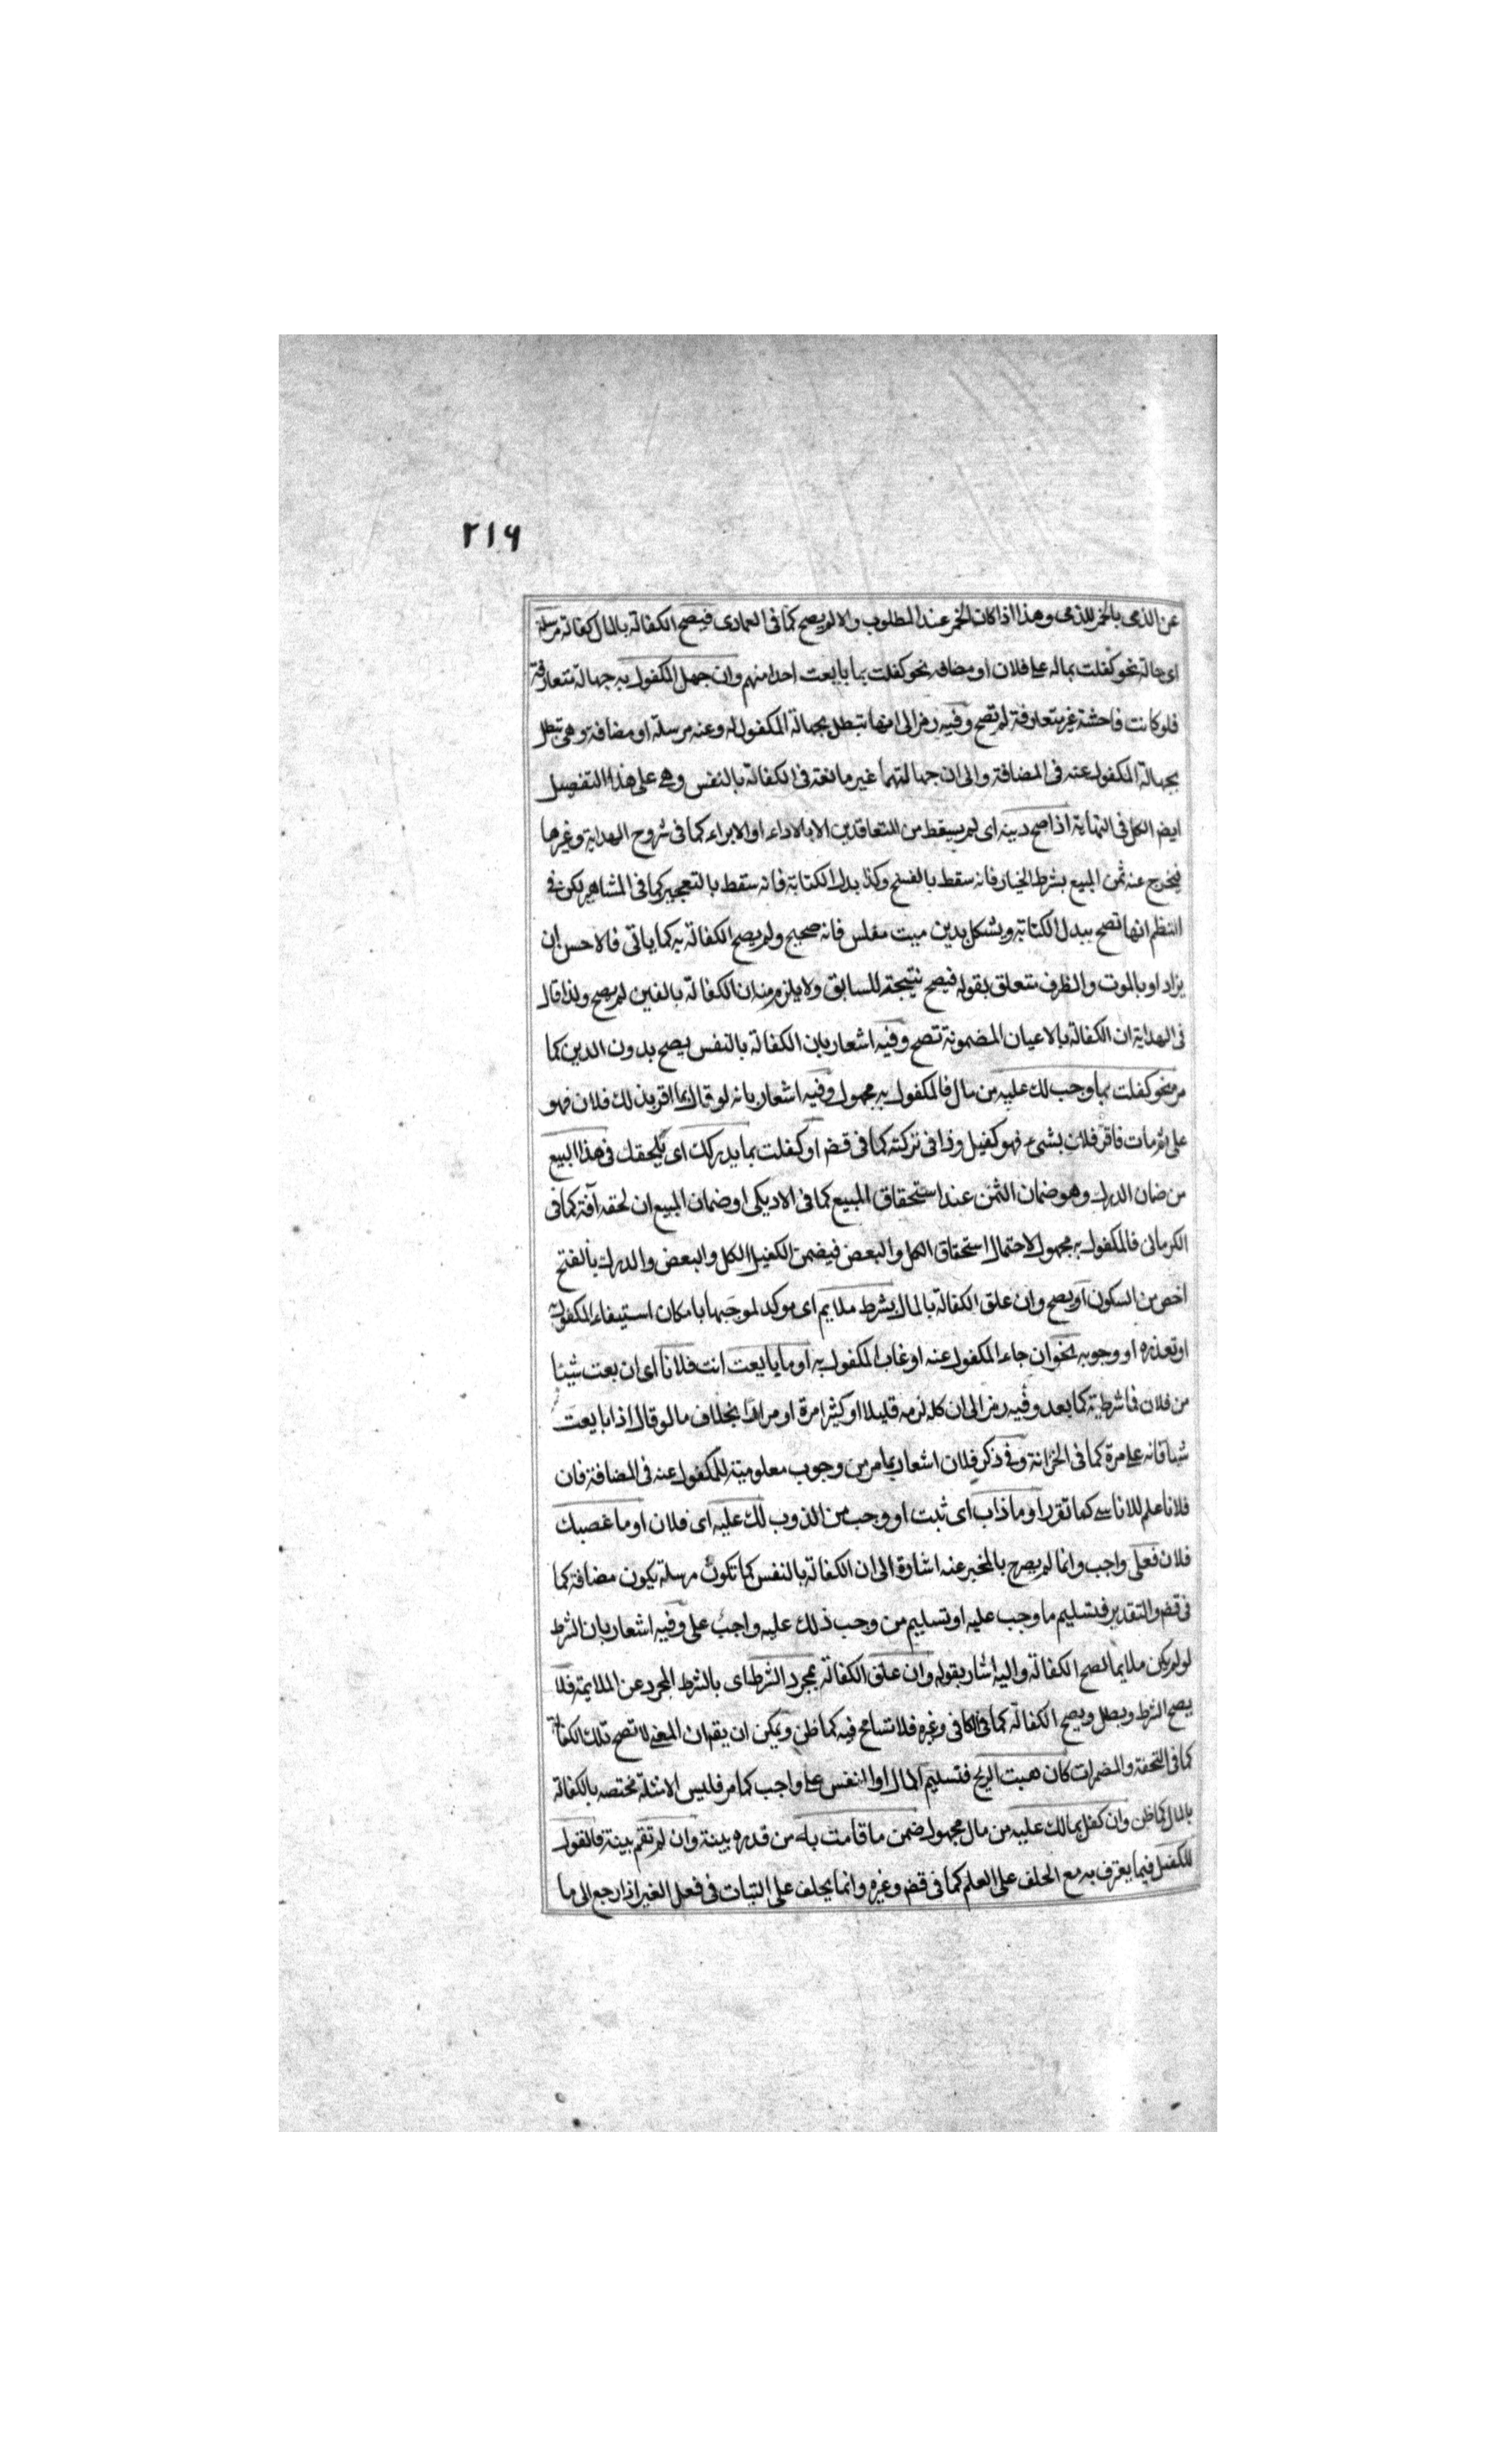 ٢١٦
عن الذمى بالخمر للذمى وهذا اذا كان الخمر عند المطلوب والا لم يصح كما فى العمادى فيصح الكفالة بالمال كفالة مرسلة
اى حالة نحو كفلت بماله على فلان او مضافه نحو كفلت بما بايعت احدا منهم وان جهل المكفول به جهالة متعارفة
فلو كانت فاحشة غير متعارفة لم تصح وفيه رمز الى انها تبطل بجهالة المكفول له وعنه مرسلة او مضافة وهى تبطل
بجهالة المكفول عنه فى المضافة والى ان جهالتهما غير مانعة فى الكفالة بالنفس وهى على هذا التفصيل
ايض الكل فى النهاية اذا صح دينه اى لم يسقط من المتعاقدين الا بالاداء او الابراء كما فى شروح الهداية وغيرها
فيخرج عنه ثمن المبيع بشرط الخيار فانه سقط بالفسخ وكذا بدل الكتابة فانه سقط بالتعجيز كما فى المشاهير لكن فى
النظم انها تصح ببدل الكتابة ويشكل بدين ميت مفلس فانه صحيح ولم يصح الكفالة به كما ياتى فالاحسن ان
يزاد او بالموت والظرف متعلق بقوله فيصح نتيجة للسابق ولا يلزم منه ان الكفالة بالعين لم يصح ولذا قال
فى الهداية ان الكفالة بالاعيان المضمونة تصح وفيه اشعار بان الكفالة بالنفس يصح بدون الدين كما
مر نحو كفلت بما وجب لك عليه من مال فالمكفول به مجهول وفيه اشعار بانه لو قال بما اقر بذلك فلان فهو
على ثم مات فاقر فلان بشئ فهو كفيل وذا فى تركته كما فى قض او كفلت بما يدركك اى يلحقك فى هذا البيع
من ضمان الدرك وهو ضمان الثمن عند استحقاق المبيع كما فى الاديكى او ضمان المبيع ان لحقه آفة كما فى
الكرمانى فالمكفول به مجهول لاحتمال استحقاق الكل والبعض فيضمن الكفيل الكل والبعض والدرك بالفتح
اخص من السكون او يصح وان علق الكفالة بالمال بشرط ملايم اى موكد لموجبها بامكان استيفاء المكفول به
او تعذره او وجوبه نحو ان جاء المكفول عنه او غاب المكفول به او ما بايعت انت فلانا اى ان بعت شيئا
من فلان فما شرطية كما بعد وفيه رمز الى ان كله لزمه قليلا او كثيرا مرة او مرارا بخلاف ما لو قال اذا بايعت
شيئا فانه على مرة كما فى الخزانة وفى ذكر فلان اشعار بما مر من وجوب معلومية للمكفول عنه فى المضافة فان
فلانا علم للاناسى كما تقرر او ما ذاب اى ثبت او وجب من الذوب لك عليه اى فلان او ما غصبك
فلان فعلى واجب وانما لم يصرح بالمخبر عنه اشارة الى ان الكفالة بالنفس كما تكون مرسلة يكون مضافة كما
فى قض والتقدير فتسليم ما وجب عليه او تسليم من وجب ذلك عليه واجب على وفيه اشعار بان الشرط
لو لم يكن ملايما لصح الكفالة واليه اشار بقوله وان علق الكفالة بمجرد الشرط اى بالشرط المجرد عن الملايمة فلا
يصح الشرط وبطل ويصح الكفالة كما فى الكافى وغيره فلا تسامح فيه كما ظن ويمكن ان يقم ان المعنى لا تصح تلك الكفالة
كما فى التحفة والمضمرات كان هبت الريح فتسليم المال او النفس على واجب كما مر فليس الامثلة مختصه بالكفالة
بالمال كما ظن وان كفل بما لك عليه من مال مجهول ضمن ما قامت به من قدره بينة وان لم تقم بينة فالقول
للكفيل فيما يعترف به مع الحلف على العلم كما فى قض وغيره وانما يحلف على البتات فى فعل الغير اذا رجع الى ما